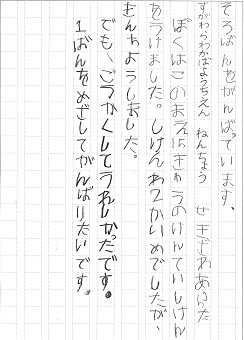 そろばんをがんばっています。
すがわらわかばようちえん ねんちょう せきざわあらた
ぼくはこのまえ15きゅうのけんていしけん
をうけました。しけんわ2かいめでしたが、
きんちょうしました。
でも、ごうかくしてうれしかったです。
1ばんをめざしてがんばりたいです。